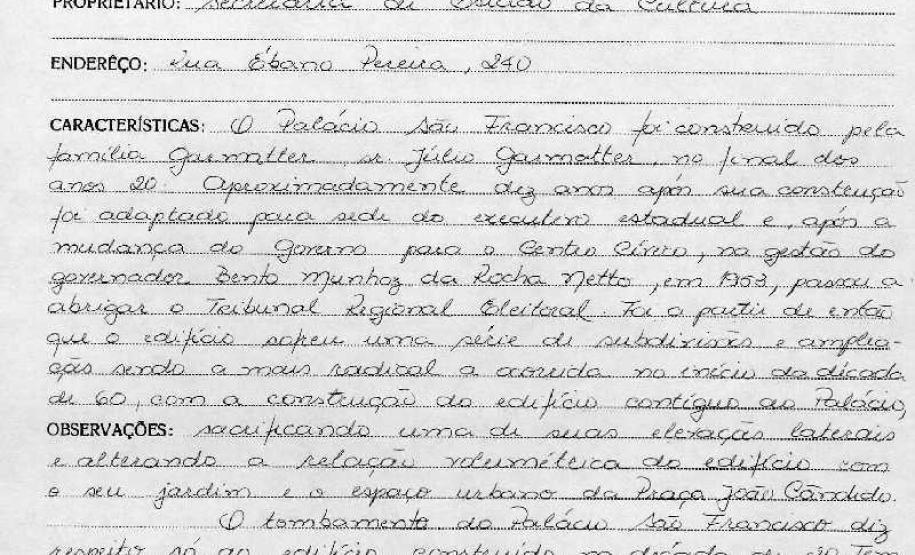 PROPRIETÁRIO: Secretaria de Estado da Cultura
ENDERÊÇO: Rua Ébano Pereira, 240
CARACTERÍSTICAS: O Palácio São Francisco foi construido pela
família Garmatter, sr. Júlio Garmatter, no final dos
anos 20. Aproximadamente dez anos após sua construção
foi adaptado para sede do executivo estadual e, após a
mudança do Governo para o Centro Cívico, na gestão do
governador Bento Munhoz da Rocha Netto, em 1953, passou a
abrigar o Tribunal Regional Eleitoral. Foi a partir de então
que o edifício sofreu uma série de subdivisões e amplia-
ções sendo a mais radical a ocorrida no início da década
de 60, com a construção do edifício contíguo ao Palácio,
OBSERVAÇÕES: sacrificando uma de suas elevações laterais
e alterando a relação volumétrica do edifício com
o seu jardim e o espaço urbano da Praça João Cândido.
O tombamento do Palácio São Francisco diz
respeito só ao edifício construído na década de 20. Tem